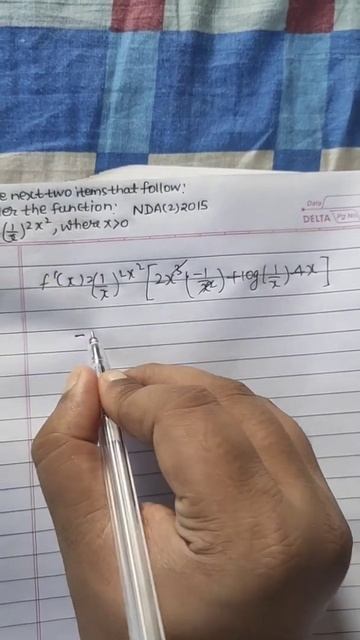 e next two items that follow:
er the function: NDA(2)2015
(1/x)^2x², where x>0
Date
DELTA Pg No
f'(x)=(1/x)^2x² [2x³(-1/x²)+log(1/x)·4x]
-